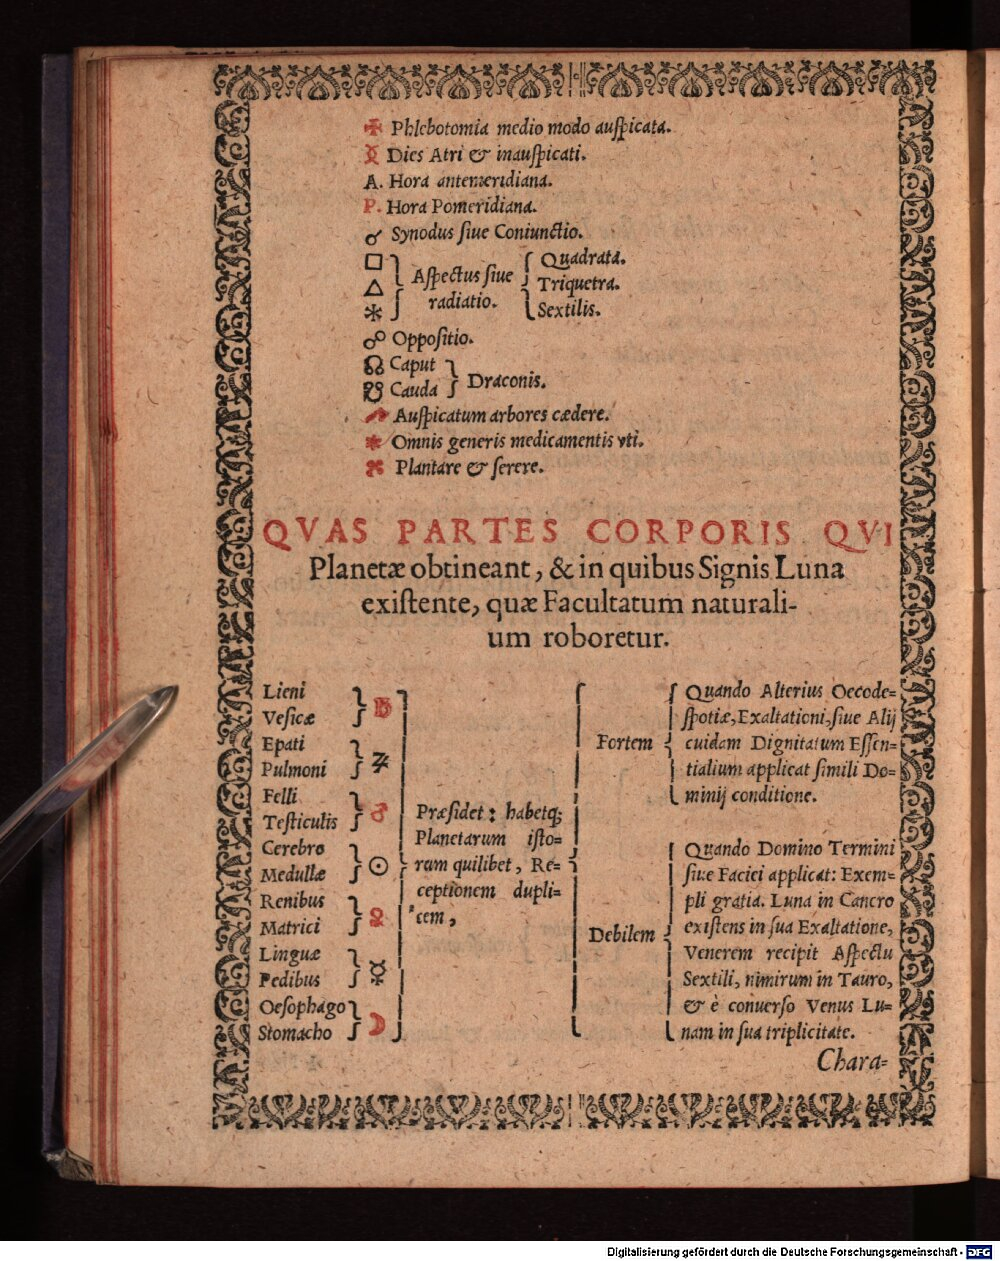 ✠ Phlebotomia medio modo auſpicata.
Dies Atri & inauſpicati.
A. Hora antemeridiana.
P. Hora Pomeridiana.
☌ Synodus ſiue Coniunctio.
□ △ ⚹ Aſpectus ſiue radiatio. Quadrata.
Triquetra.
Sextilis.
☍ Oppoſitio.
☊ Caput
☋ Cauda Draconis.
Auſpicatum arbores cædere.
Omnis generis medicamentis vti.
Plantare & ſerere.
QVAS PARTES CORPORIS QVI
Planetæ obtineant, & in quibus Signis Luna
exiſtente, quæ Facultatum naturali-
um roboretur.
Lieni
Veſicæ ♄
Epati
Pulmoni ♃
Felli
Teſticulis ♂
Cerebro
Medullæ ☉
Renibus
Matrici ♀
Linguæ
Pedibus ☿
Oeſophago
Stomacho ☽
Præſidet: habetq;
Planetarum iſto-
rum quilibet, Re-
ceptionem dupli-
cem,
Fortem
Quando Alterius Oecode-
ſpotiæ, Exaltationi, ſiue Alij
cuidam Dignitatum Eſſen-
tialium applicat ſimili Do-
minij conditione.
Debilem
Quando Domino Termini
ſiue Faciei applicat: Exem-
pli gratia. Luna in Cancro
exiſtens in ſua Exaltatione,
Venerem recipit Aſpectu
Sextili, nimirum in Tauro,
& è conuerſo Venus Lu-
nam in ſua triplicitate.
Chara-
Digitalisierung gefördert durch die Deutsche Forschungsgemeinschaft - DFG